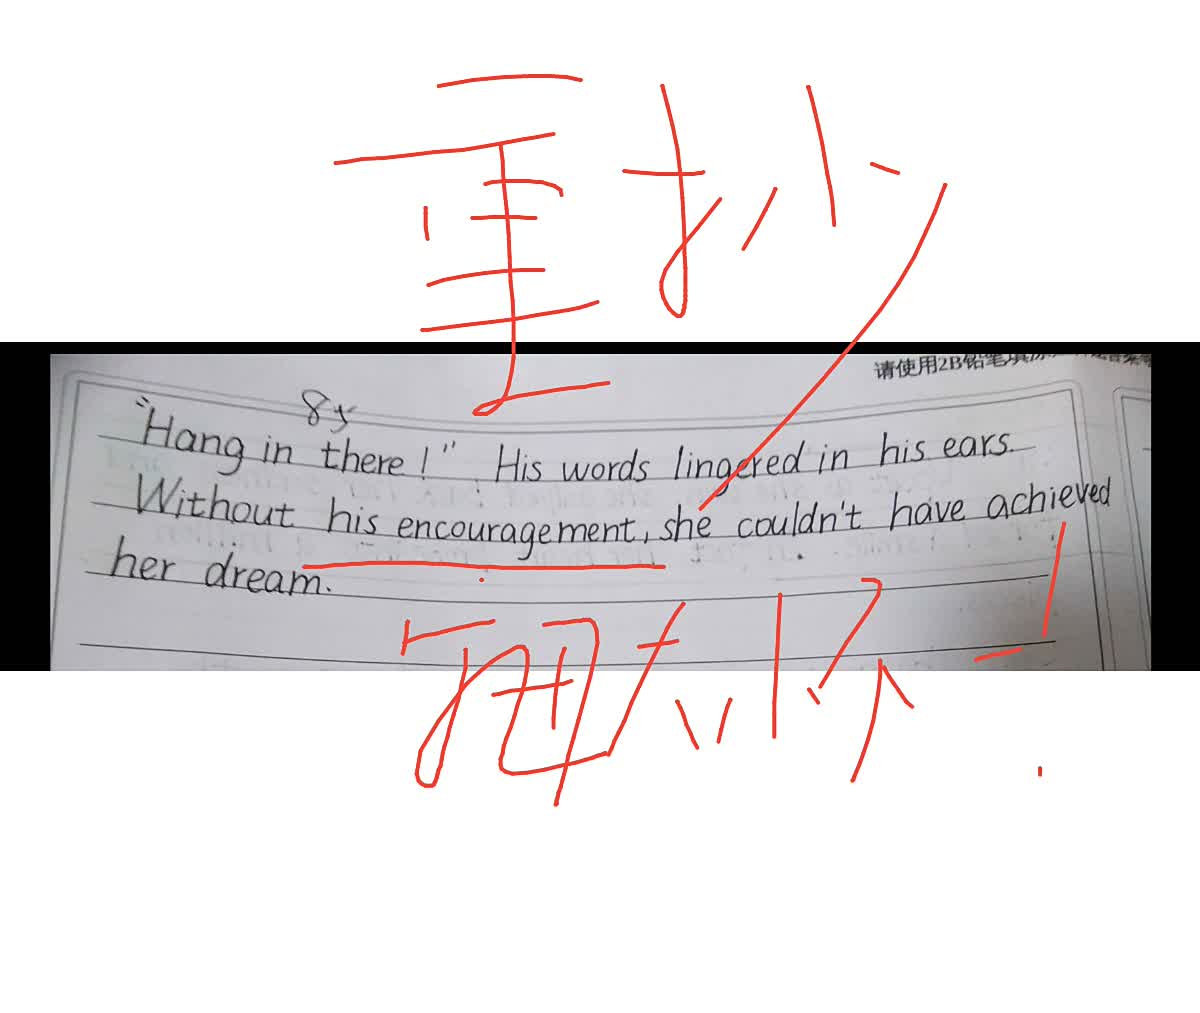 重抄
请使用2B铅笔填涂
8y
"Hang in there!" His words lingered in his ears.
Without his encouragement, she couldn't have achieved
her dream.